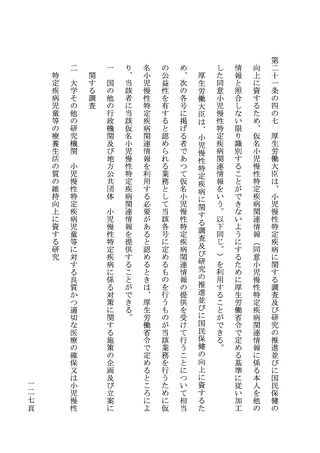 第二十一条の四の七　厚生労働大臣は、小児慢性特定疾病に関する調査及び研究の推進並びに国民保健の
向上に資するため、仮名小児慢性特定疾病関連情報（同意小児慢性特定疾病関連情報に係る本人を他の
情報と照合しない限り識別することができないようにするために厚生労働省令で定める基準に従い加工
した同意小児慢性特定疾病関連情報をいう。以下同じ。）を利用することができる。
厚生労働大臣は、小児慢性特定疾病に関する調査及び研究の推進並びに国民保健の向上に資するた
め、次の各号に掲げる者であつて仮名小児慢性特定疾病関連情報の提供を受けて行うことについて相当
の公益性を有すると認められる業務として当該各号に定めるものを行うものが当該業務を行うために仮
名小児慢性特定疾病関連情報を利用する必要があると認めるときは、厚生労働省令で定めるところによ
り、当該者に当該仮名小児慢性特定疾病関連情報を提供することができる。
一　国の他の行政機関及び地方公共団体　小児慢性特定疾病に係る対策に関する施策の企画及び立案に
関する調査
二　大学その他の研究機関　小児慢性特定疾病児童等に対する良質かつ適切な医療の確保又は小児慢性
特定疾病児童等の療養生活の質の維持向上に資する研究
一二七頁